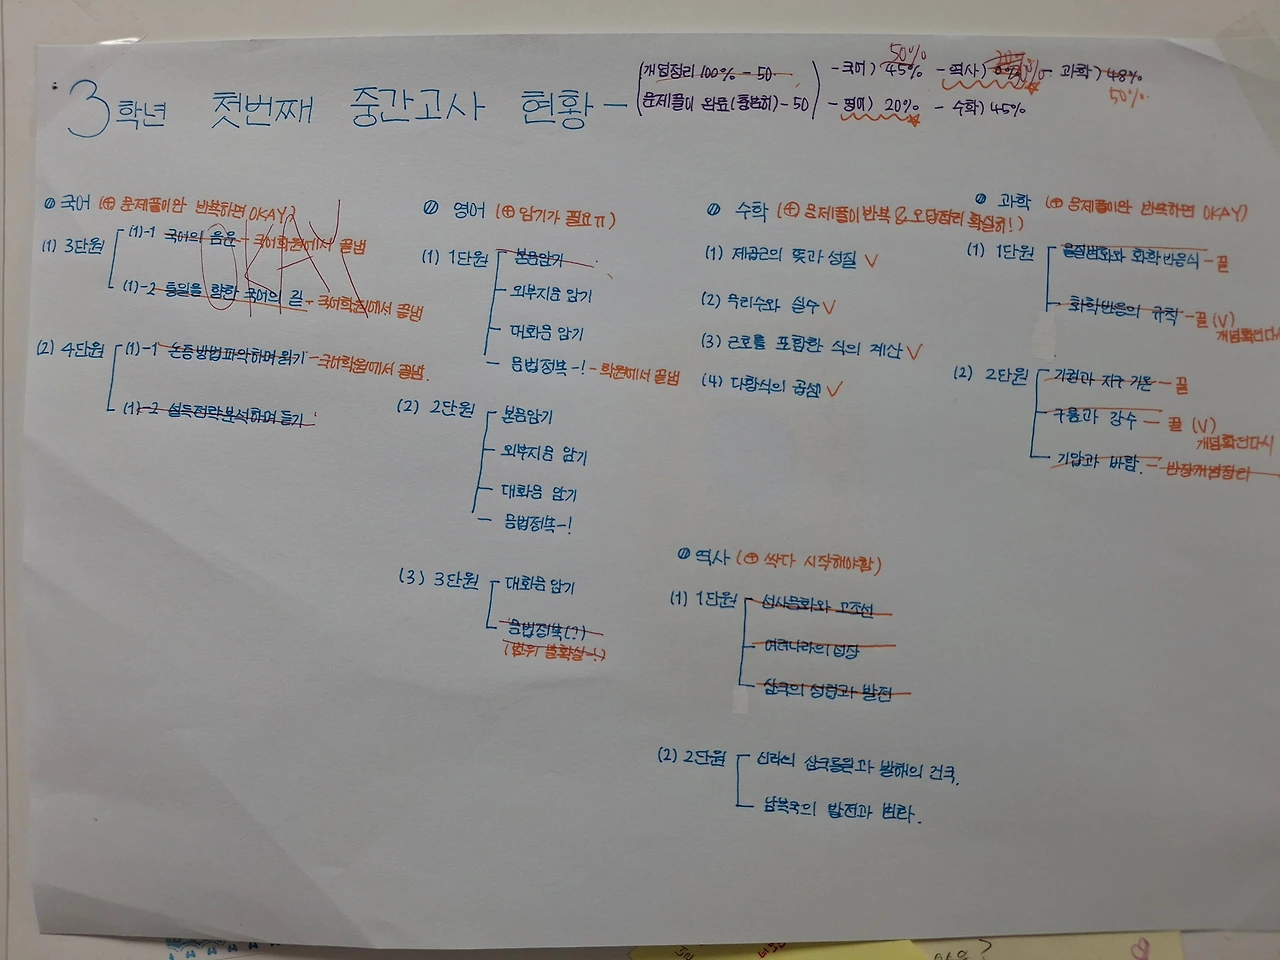 3학년 첫번째 중간고사 현황 -
(개념정리 100% - 50
(문제풀이 완료(충분히) - 50)
50%
- 국어) 45% - 역사) - 과학) 48%
50%
- 영어) 20% - 수학) 45%
국어 (⊕ 문제풀이만 반복하면 OKAY)
OKAY
(1) 3단원
(1)-1 국어의 음운 - 국어학원에서 끝냄
(1)-2 통일을 향한 국어의 길 - 국어학원에서 끝냄
(2) 4단원
(1)-1 논증방법파악하며 읽기 - 국어학원에서 끝냄.
(1)-2 설득전략분석하며 듣기
영어 (⊕ 암기가 필요ㅠ)
(1) 1단원
본문암기
외부지문 암기
대화문 암기
문법정복-! - 학원에서 끝냄
(2) 2단원
본문암기
외부지문 암기
대화문 암기
문법정복-!
(3) 3단원
대화문 암기
문법정복(?)
(범위 불확실-!)
수학 (⊕ 문제풀이반복 & 오답정리 확실히!)
(1) 제곱근의 뜻과 성질 V
(2) 무리수와 실수 V
(3) 근호를 포함한 식의 계산 V
(4) 다항식의 곱셈 V
역사 (⊕ 싹다 시작해야함)
(1) 1단원
선사문화와 고조선
여러나라의 성장
삼국의 성립과 발전
(2) 2단원
신라의 삼국통일과 발해의 건국.
남북국의 발전과 변화.
과학 (⊕ 문제풀이만 반복하면 OKAY)
(1) 1단원
물질변화와 화학반응식 - 끝
화학반응의 규칙 - 끝 (V)
개념확인다시
(2) 2단원
기권과 지구 기온 - 끝
구름과 강수 - 끝 (V)
개념확인다시
기압과 바람. - 반장개념정리